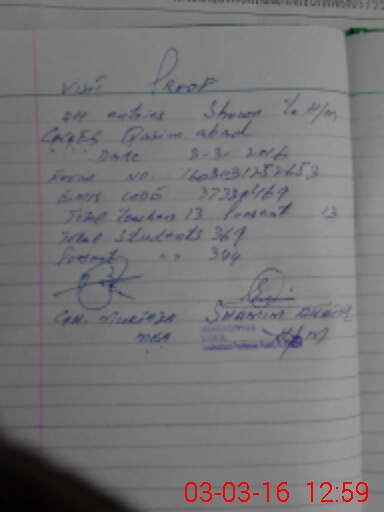 Visit Proof
All entries Shown to H/m
GGES Qasim abad
Date 3-3-2016
Form NO. 1603031252653
EMIS CODE 37330469
Total teachers 13 Present 13
Total Students 369
Present " " 344
GH. MURTAZA SHAMIM AKHTAR
MEA H/M
03-03-16 12:59